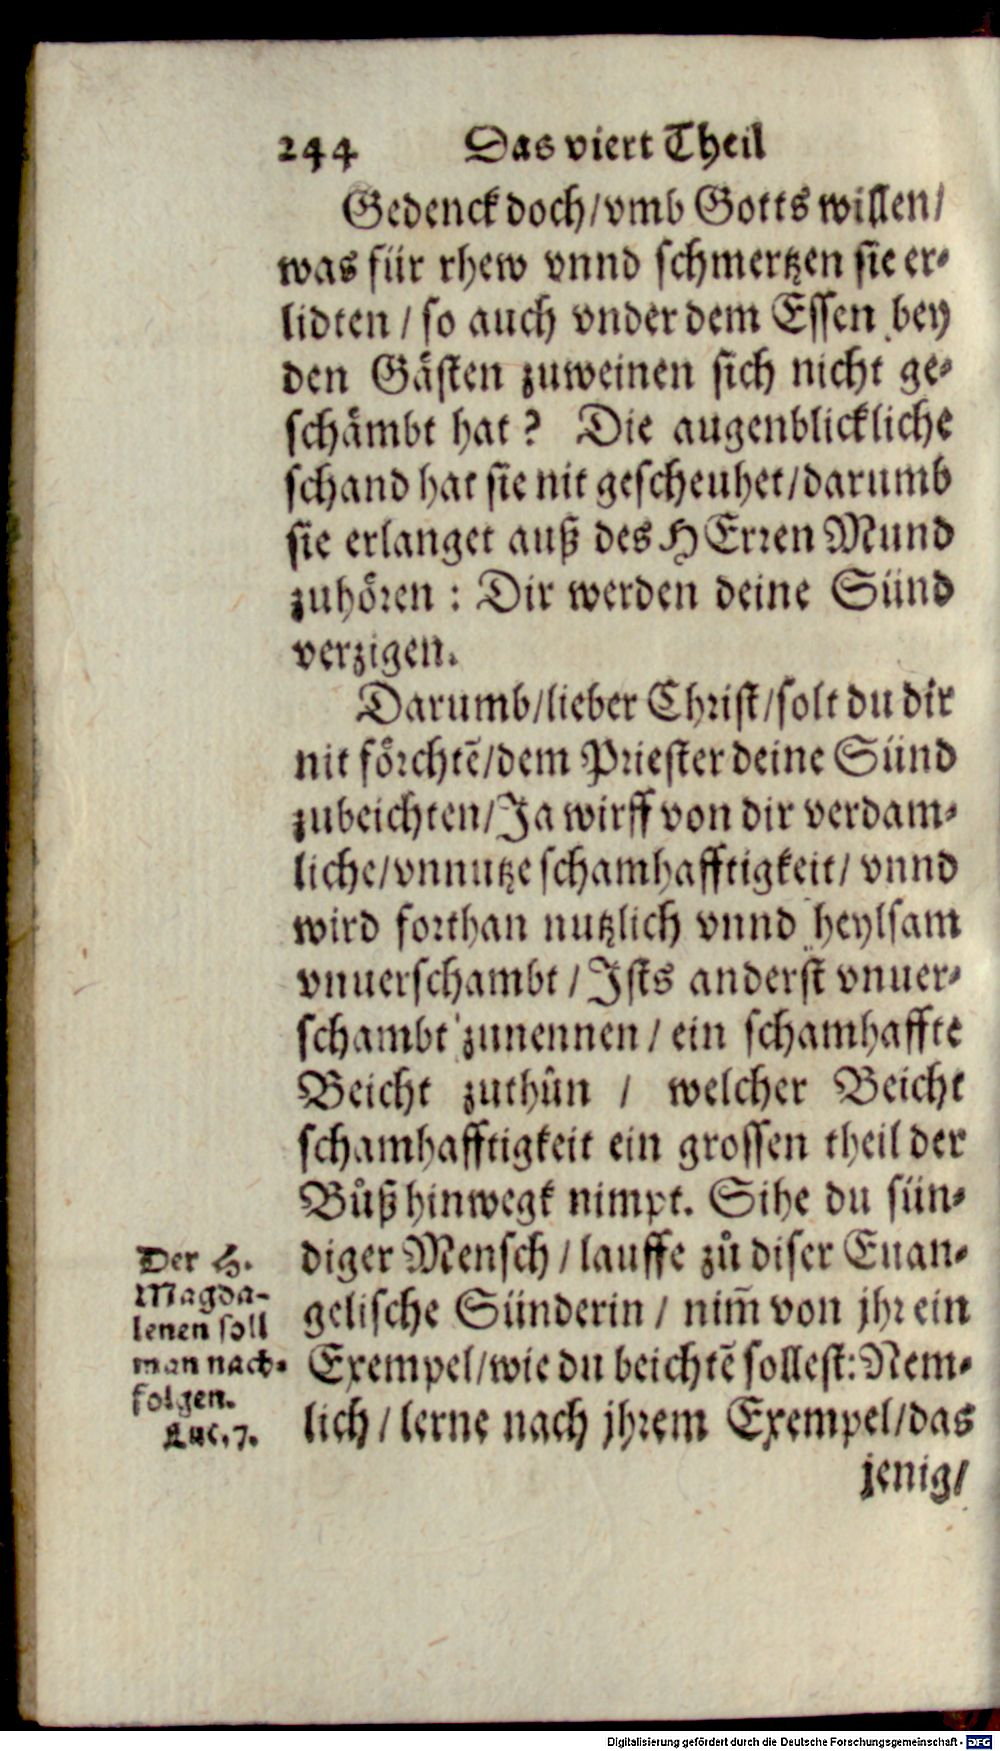 244 Das viert Theil
Gedenck doch/ vmb Gotts willen/
was für rhew vnnd schmertzen sie er-
lidten / so auch vnder dem Essen bey
den Gästen zuweinen sich nicht ge-
schämbt hat? Die augenblickliche
schand hat sie nit gescheuhet/darumb
sie erlanget auß des HErren Mund
zuhören : Dir werden deine Sünd
verzigen.
Darumb/lieber Christ/solt du dir
nit förchtẽ/dem Priester deine Sünd
zubeichten/Ja wirff von dir verdam-
liche/vnnutze schamhafftigkeit/ vnnd
wird forthan nutzlich vnnd heylsam
vnuerschambt / Ists anderst vnuer-
schambt zunennen / ein schamhaffte
Beicht zuthůn / welcher Beicht
schamhafftigkeit ein grossen theil der
Bůß hinwegk nimpt. Sihe du sün-
diger Mensch / lauffe zů diser Euan-
gelische Sünderin / nim̃ von jhr ein
Exempel/wie du beichtẽ sollest: Nem-
lich / lerne nach jhrem Exempel/das
jenig/
Der H.
Magda-
lenen soll
man nach-
folgen.
Luc. 7.
Digitalisierung gefördert durch die Deutsche Forschungsgemeinschaft - DFG